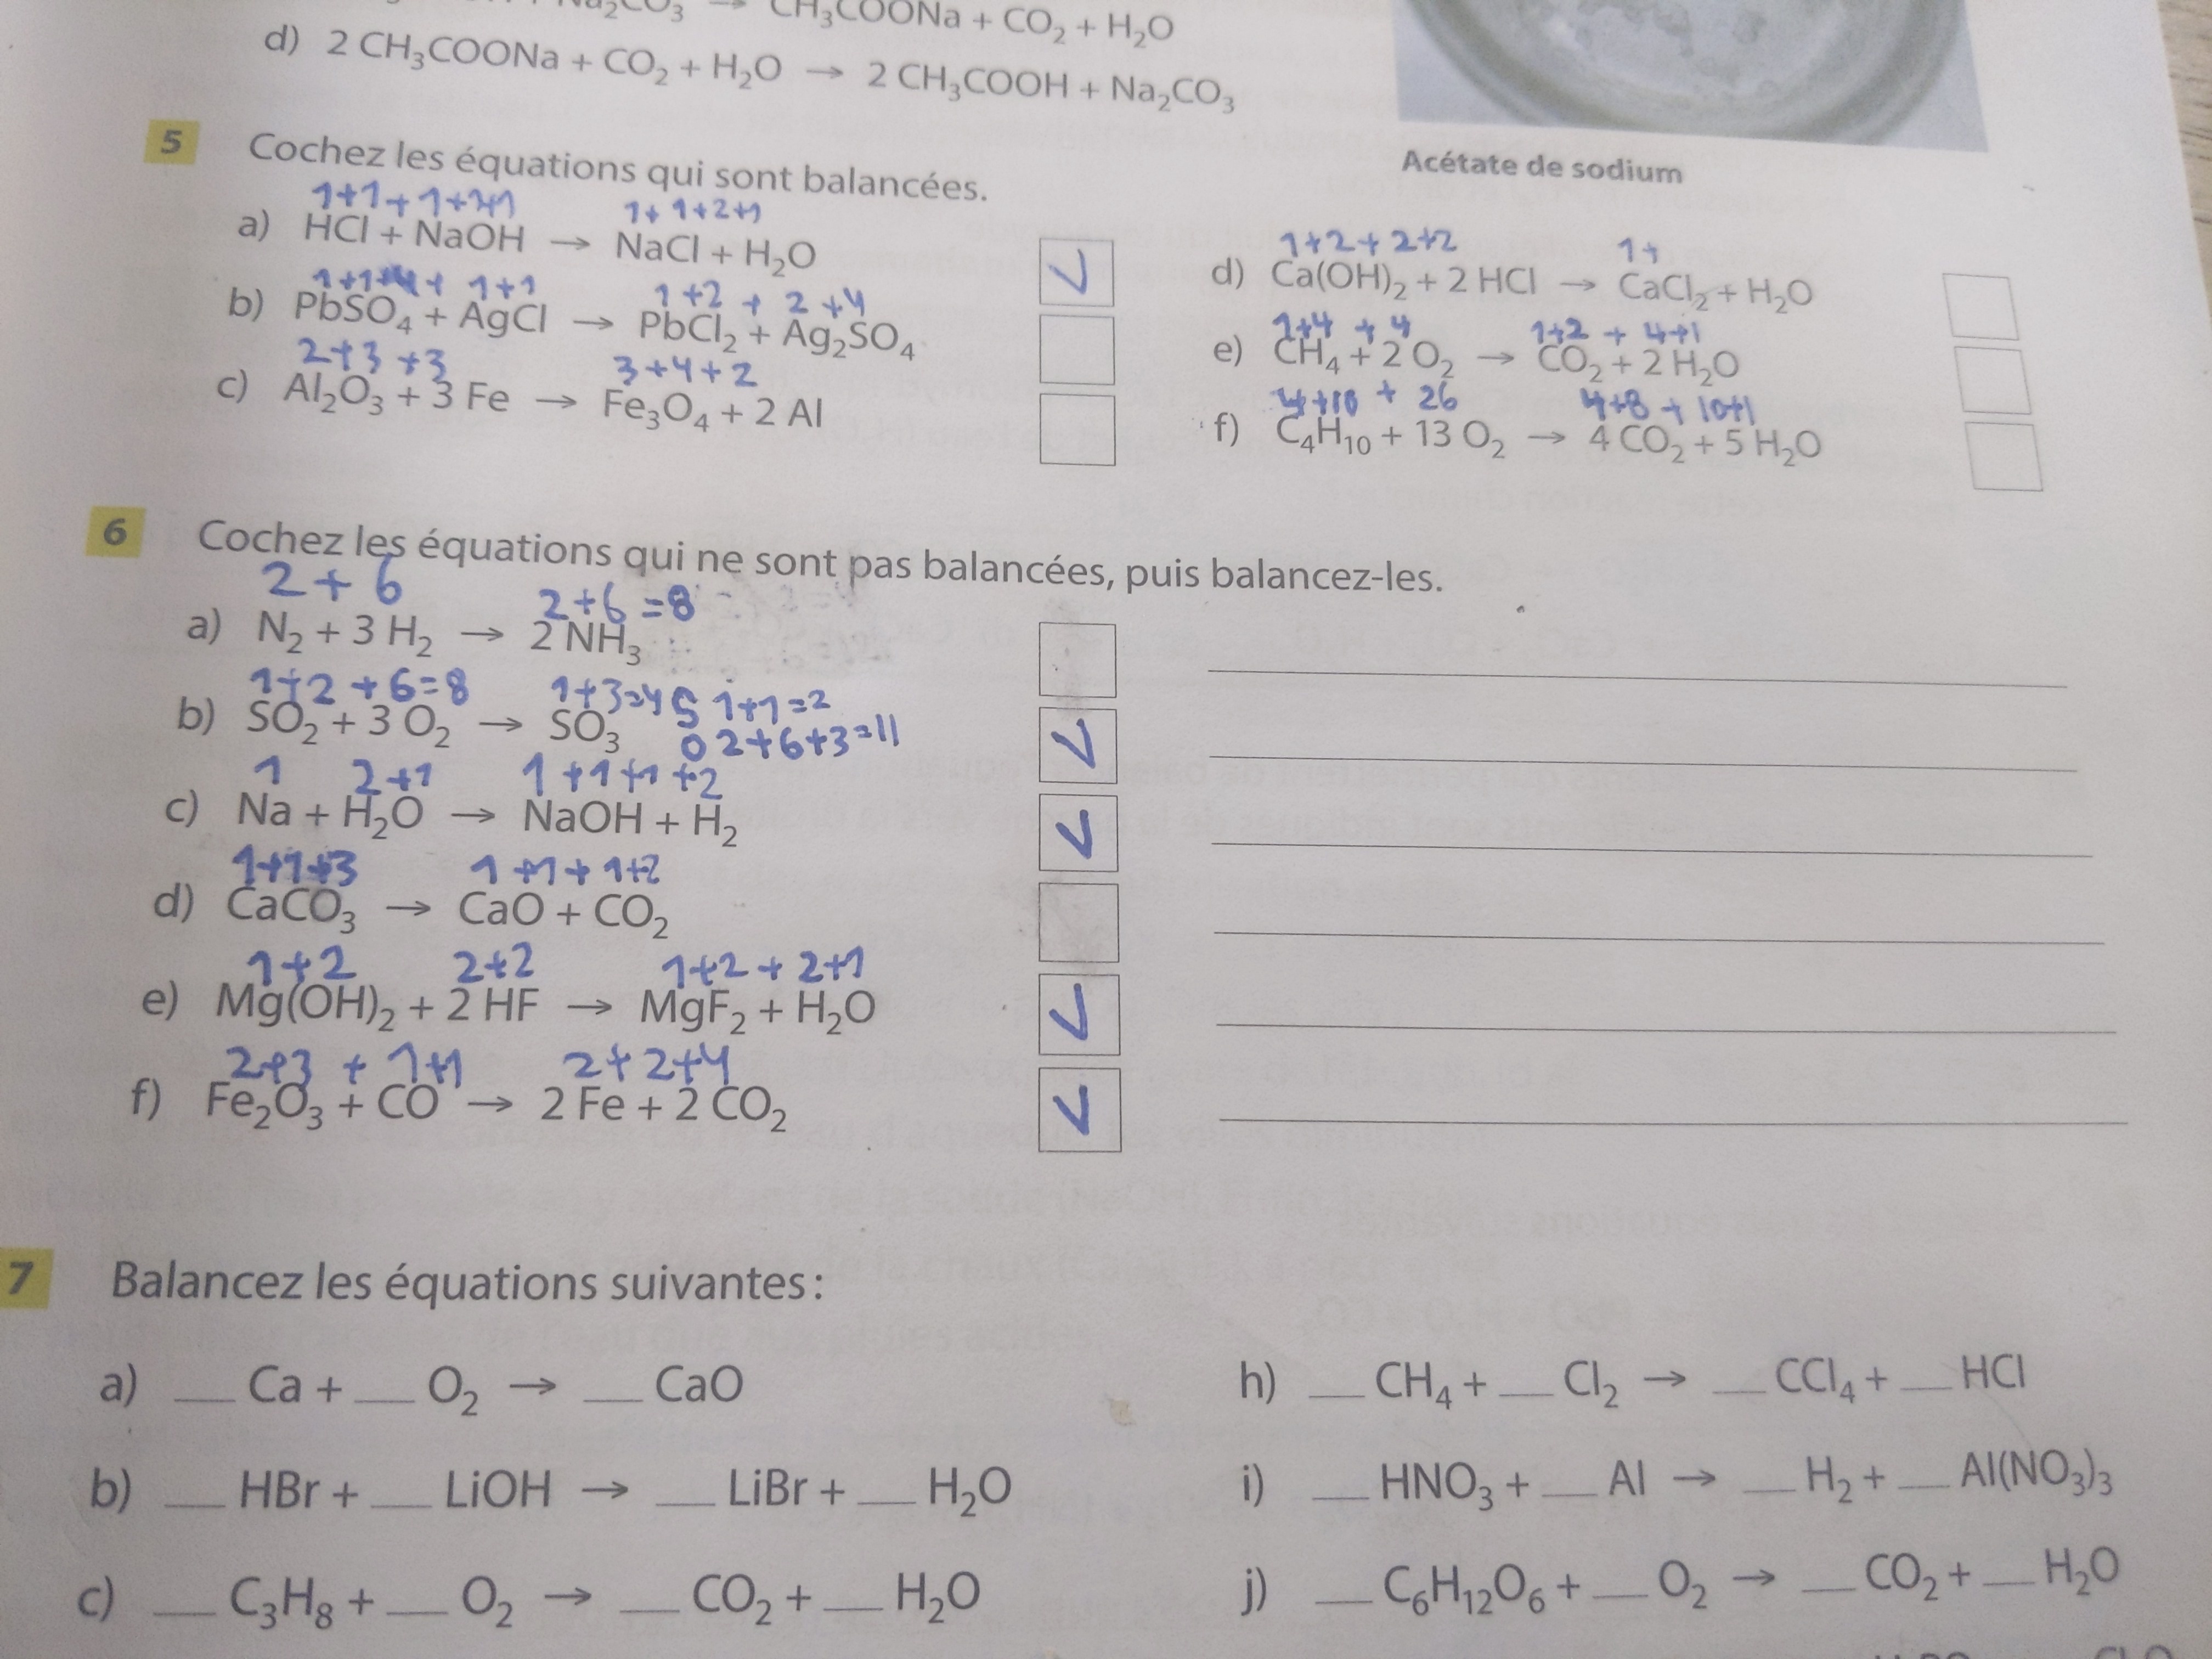 CH₃COONa + CO₂ + H₂O
d) 2 CH₃COONa + CO₂ + H₂O → 2 CH₃COOH + Na₂CO₃
Acétate de sodium
5 Cochez les équations qui sont balancées.
1+1+1+1+1 1+1+2+1
a) HCl + NaOH → NaCl + H₂O
1+1+4+1+1 1+2+2+4
b) PbSO₄ + AgCl → PbCl₂ + Ag₂SO₄
2+3+3 3+4+2
c) Al₂O₃ + 3 Fe → Fe₃O₄ + 2 Al
1+2+2+2 1+
d) Ca(OH)₂ + 2 HCl → CaCl₂ + H₂O
1+4+4 1+2+4+1
e) CH₄ + 2 O₂ → CO₂ + 2 H₂O
4+10+26 4+8+10+1
f) C₄H₁₀ + 13 O₂ → 4 CO₂ + 5 H₂O
6 Cochez les équations qui ne sont pas balancées, puis balancez-les.
2+6 2+6=8
a) N₂ + 3 H₂ → 2 NH₃
1+2+6=8 1+3=4 S 1+1=2
b) SO₂ + 3 O₂ → SO₃ O 2+6+3=11
1 2+1 1+1+1+2
c) Na + H₂O → NaOH + H₂
1+1+3 1+1+1+2
d) CaCO₃ → CaO + CO₂
1+2 2+2 1+2+2+1
e) Mg(OH)₂ + 2 HF → MgF₂ + H₂O
2+3+1+1 2+2+4
f) Fe₂O₃ + CO → 2 Fe + 2 CO₂
7 Balancez les équations suivantes :
a) __ Ca + __ O₂ → __ CaO
b) __ HBr + __ LiOH → __ LiBr + __ H₂O
c) __ C₃H₈ + __ O₂ → __ CO₂ + __ H₂O
h) __ CH₄ + __ Cl₂ → __ CCl₄ + __ HCl
i) __ HNO₃ + __ Al → __ H₂ + __ Al(NO₃)₃
j) __ C₆H₁₂O₆ + __ O₂ → __ CO₂ + __ H₂O